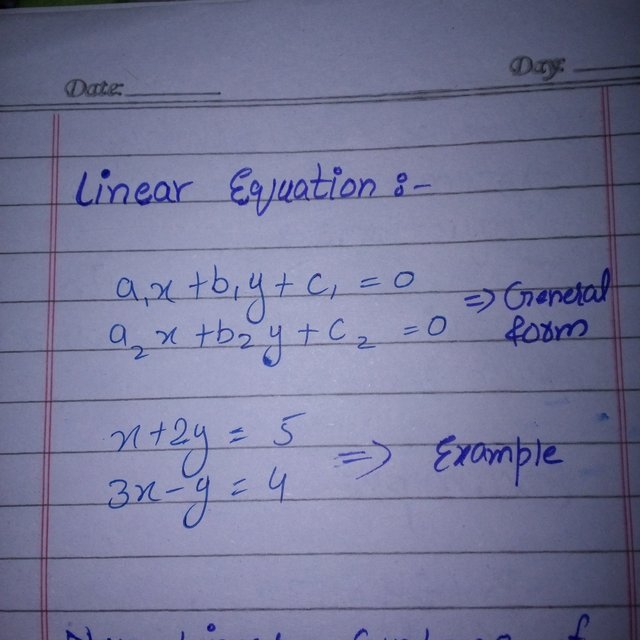 Day:
Date:
Linear Equation :-
a₁x + b₁y + c₁ = 0
a₂x + b₂y + c₂ = 0 => General form
x + 2y = 5
3x - y = 4 => Example